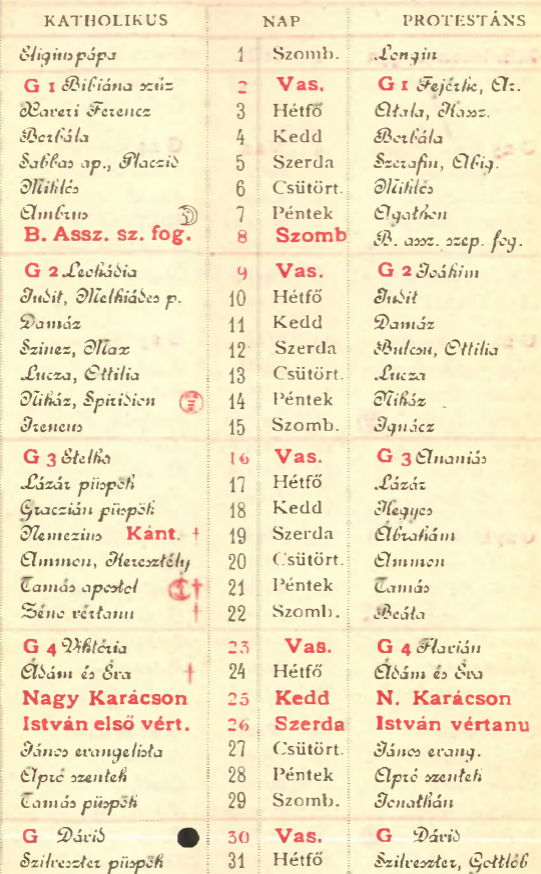 KATHOLIKUS NAP PROTESTÁNS
Eligius pápa 1 Szomb. Longin
G 1 Bibiána szűz 2 Vas. G 1 Fejérke, Ar.
Xaveri Ferencz 3 Hétfő Atala, Kassz.
Borbála 4 Kedd Borbála
Sabbas ap., Placzid 5 Szerda Szerafin, Abig.
Miklós 6 Csütört. Miklós
Ambrus 7 Péntek Agathon
B. Assz. sz. fog. 8 Szomb B. assz. szep. fog.
G 2 Leokádia 9 Vas. G 2 Joákim
Judit, Melkiádes p. 10 Hétfő Judit
Damáz 11 Kedd Damáz
Szinez, Max 12 Szerda Bulcsu, Ottilia
Lucza, Ottilia 13 Csütört. Lucza
Nikáz, Spiridion 14 Péntek Nikáz
Ireneus 15 Szomb. Ignácz
G 3 Etelka 16 Vas. G 3 Ananiás
Lázár püspök 17 Hétfő Lázár
Graczián püspök 18 Kedd Kegyes
Nemezius Kánt. † 19 Szerda Ábrahám
Ammon, Keresztély 20 Csütört. Ammon
Tamás apostol † 21 Péntek Tamás
Zéno vértanu † 22 Szomb. Beáta
G 4 Viktória 23 Vas. G 4 Flavián
Ádám és Éva † 24 Hétfő Ádám és Éva
Nagy Karácson 25 Kedd N. Karácson
István első vért. 26 Szerda István vértanu
János evangelista 27 Csütört. János evang.
Apró szentek 28 Péntek Apró szentek
Tamás püspök 29 Szomb. Jonathán
G Dávid 30 Vas. G Dávid
Szilveszter püspök 31 Hétfő Szilveszter, Gottlób